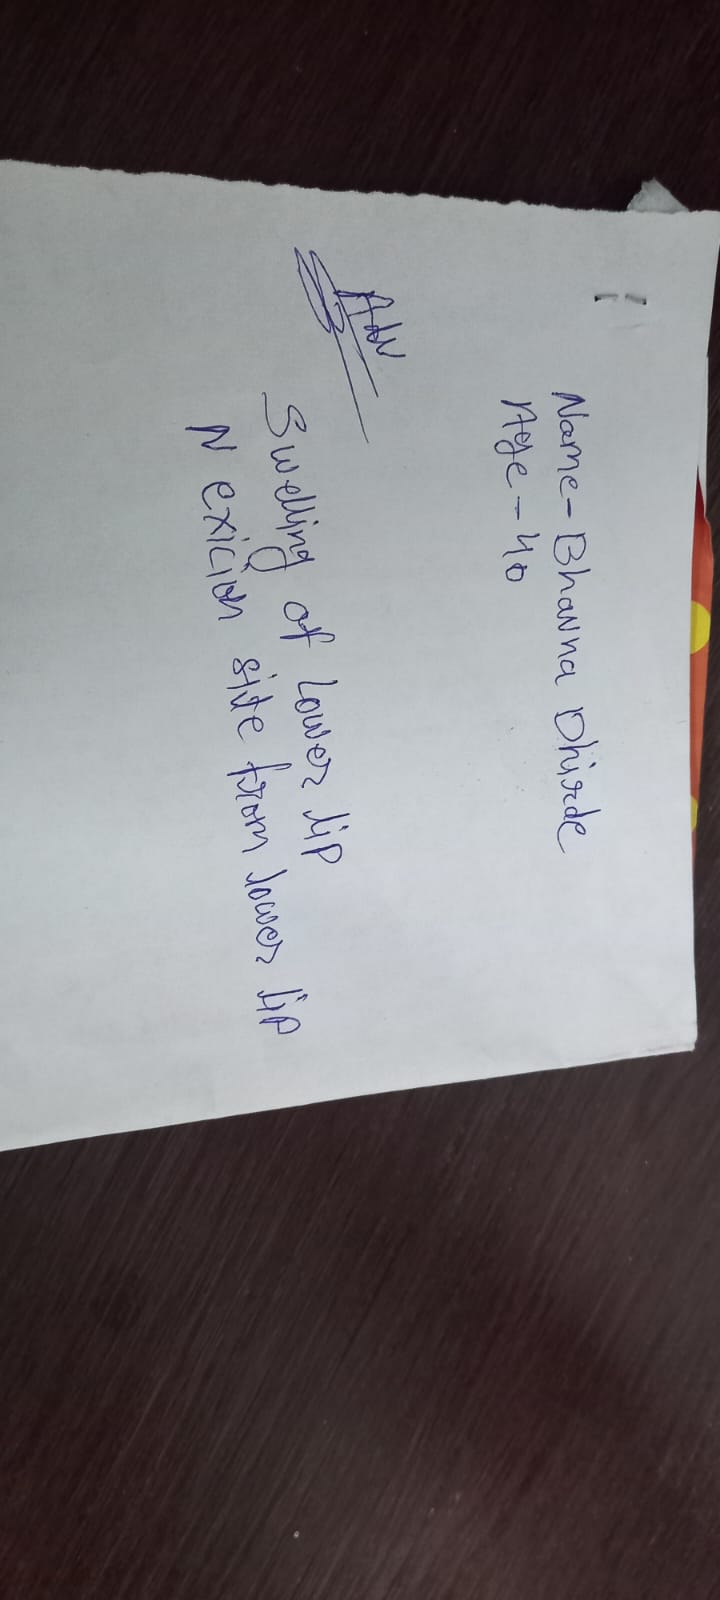 Name - Bhavna Dhirde
Age - 40
Adv
Swelling of Lower lip
N exicion site from lower lip